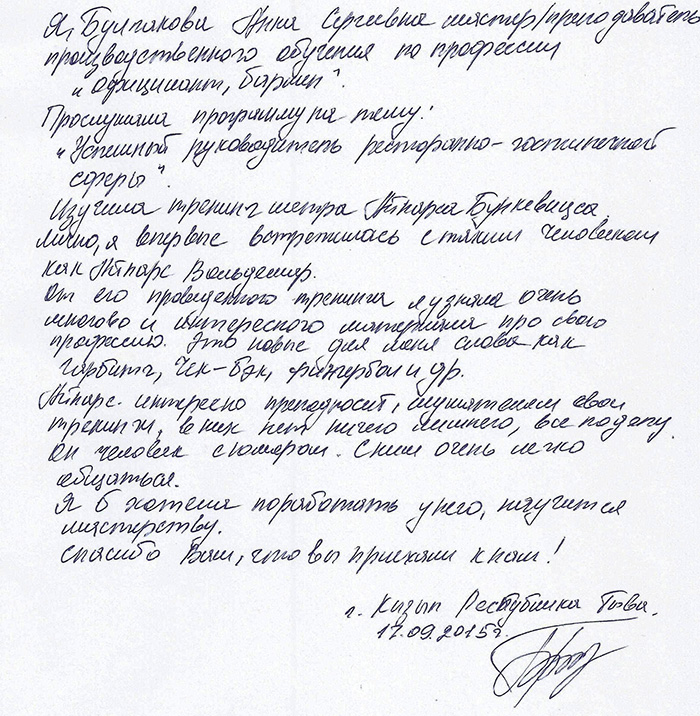 Я, Булгакова Анна Сергеевна мастер/преподаватель
производственного обучения по профессии
„Официант, бармен".
Прослушала программу на тему:
„Успешный руководитель ресторанно-гостиничной
сферы".
Изучила тренинг метра Айнарса Бункевицса.
Лично, я впервые встретилась с таким человеком
как Айнарс Вольдемар.
От его проведенного тренинга я узнала очень
многово и интересного материала про свою
профессию. Это новые для меня слова как
гарбитч, Чек-Бэк, фингербол и др.
Айнарс интересно преподносит, слушателям свои
тренинги, в них нет ничего лишнего, все по делу.
Он человек с юмором. С ним очень легко
общаться.
Я б хотела поработать у него, научится
мастерству.
Спасибо Вам, что вы приехали к нам!
г. Кызыл Республика Тыва.
17.09.2015г.